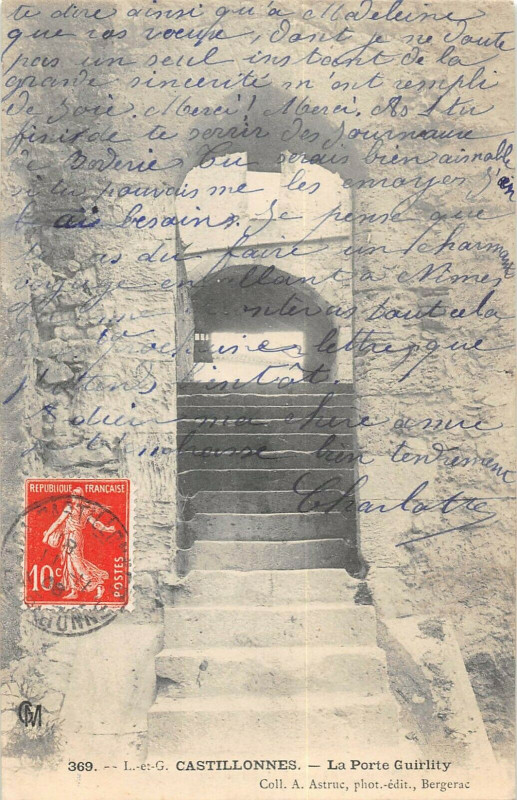 te dire ainsi qu'à Madeleine
que vos voeux, dont je ne doute
pas un seul instant de la
grande sincérité m'ont rempli
de joie. Merci! Merci. As-tu
fini de te servir des journaux
de Broderie tu serais bien aimable
si tu pouvais me les envoyer j'en
ai besoin. Je pense que
as du faire un charmant
voyage en allant à Nimes
que raconteras tout cela
lettre, que
j'attends bientôt.
Adieu ma chère amie
je t'embrasse bien tendrement
Charlotte
REPUBLIQUE FRANÇAISE
10c POSTES
GM
369. -- L.-et-G. CASTILLONNES. — La Porte Guirlity
Coll. A. Astruc, phot.-édit., Bergerac